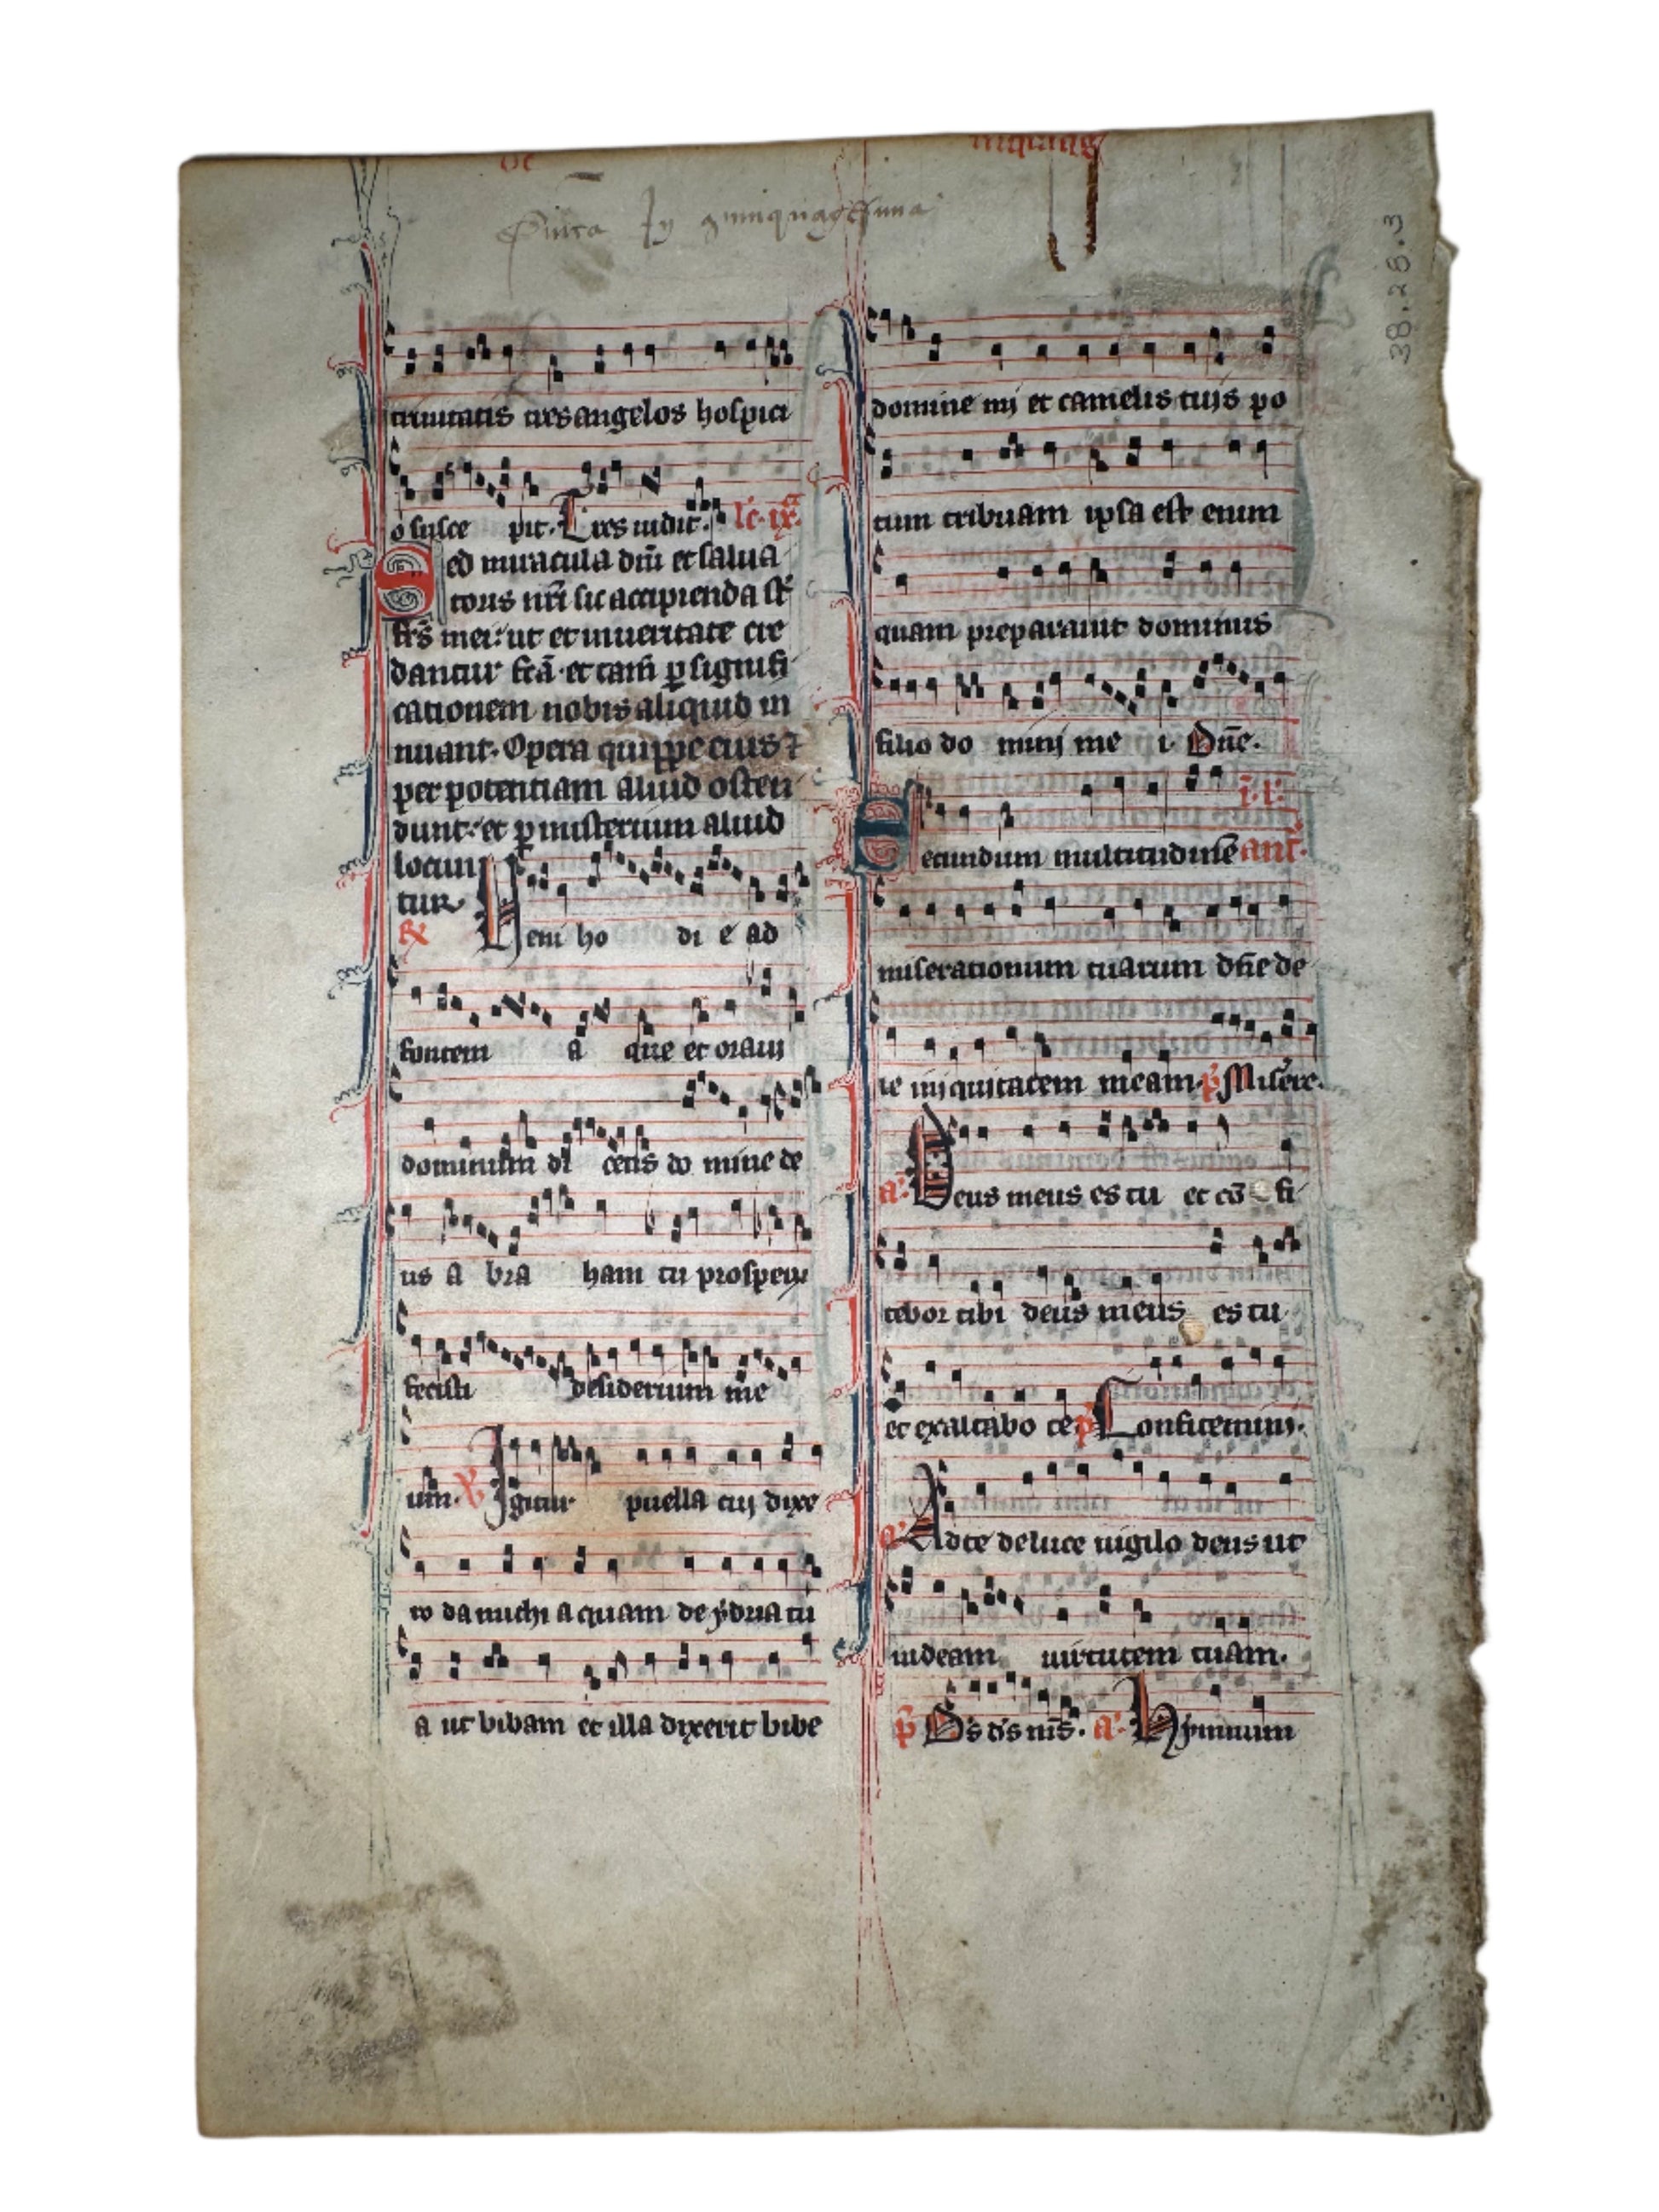 Dnica in quinquagesima
38.26.3
trinitatis tres angelos hospici
o susce pit. Tres uidit. lc. ix.
Sed miracula dnı et salua
toris nrı sic accipienda st
frs mei: ut et in ueritate cre
dantur fca. et tam p signifi
cationem nobis aliquid in
nuant. Opera quippe eius ⁊
per potentiam aliud osten
dunt: et p misterium aliud
locun
tur
℟ Veni ho di e ad
fontem a que et oraui
dominum di cens do mine de
us a bra ham tu prosperu
fecisti desiderium me
um. ℣ Igitur puella cui dixe
ro da michi aquam de ydria tu
a ut bibam et illa dixerit bibe
domine mi et camelis tuis po
tum tribuam ipsa est enim
quam preparauit dominus
filio do mini me i. Dne.
Secundum multitudinē ant.
miserationum tuarum dne de
le iniquitatem meam. p̄ Misere.
a. Deus meus es tu et cō fi
tebor tibi deus meus es tu
et exaltabo te p̄ Confitemini.
a. Ad te de luce uigilo deus ut
uideam uirtutem tuam.
p̄ Ds ds ms. a. Hymnum